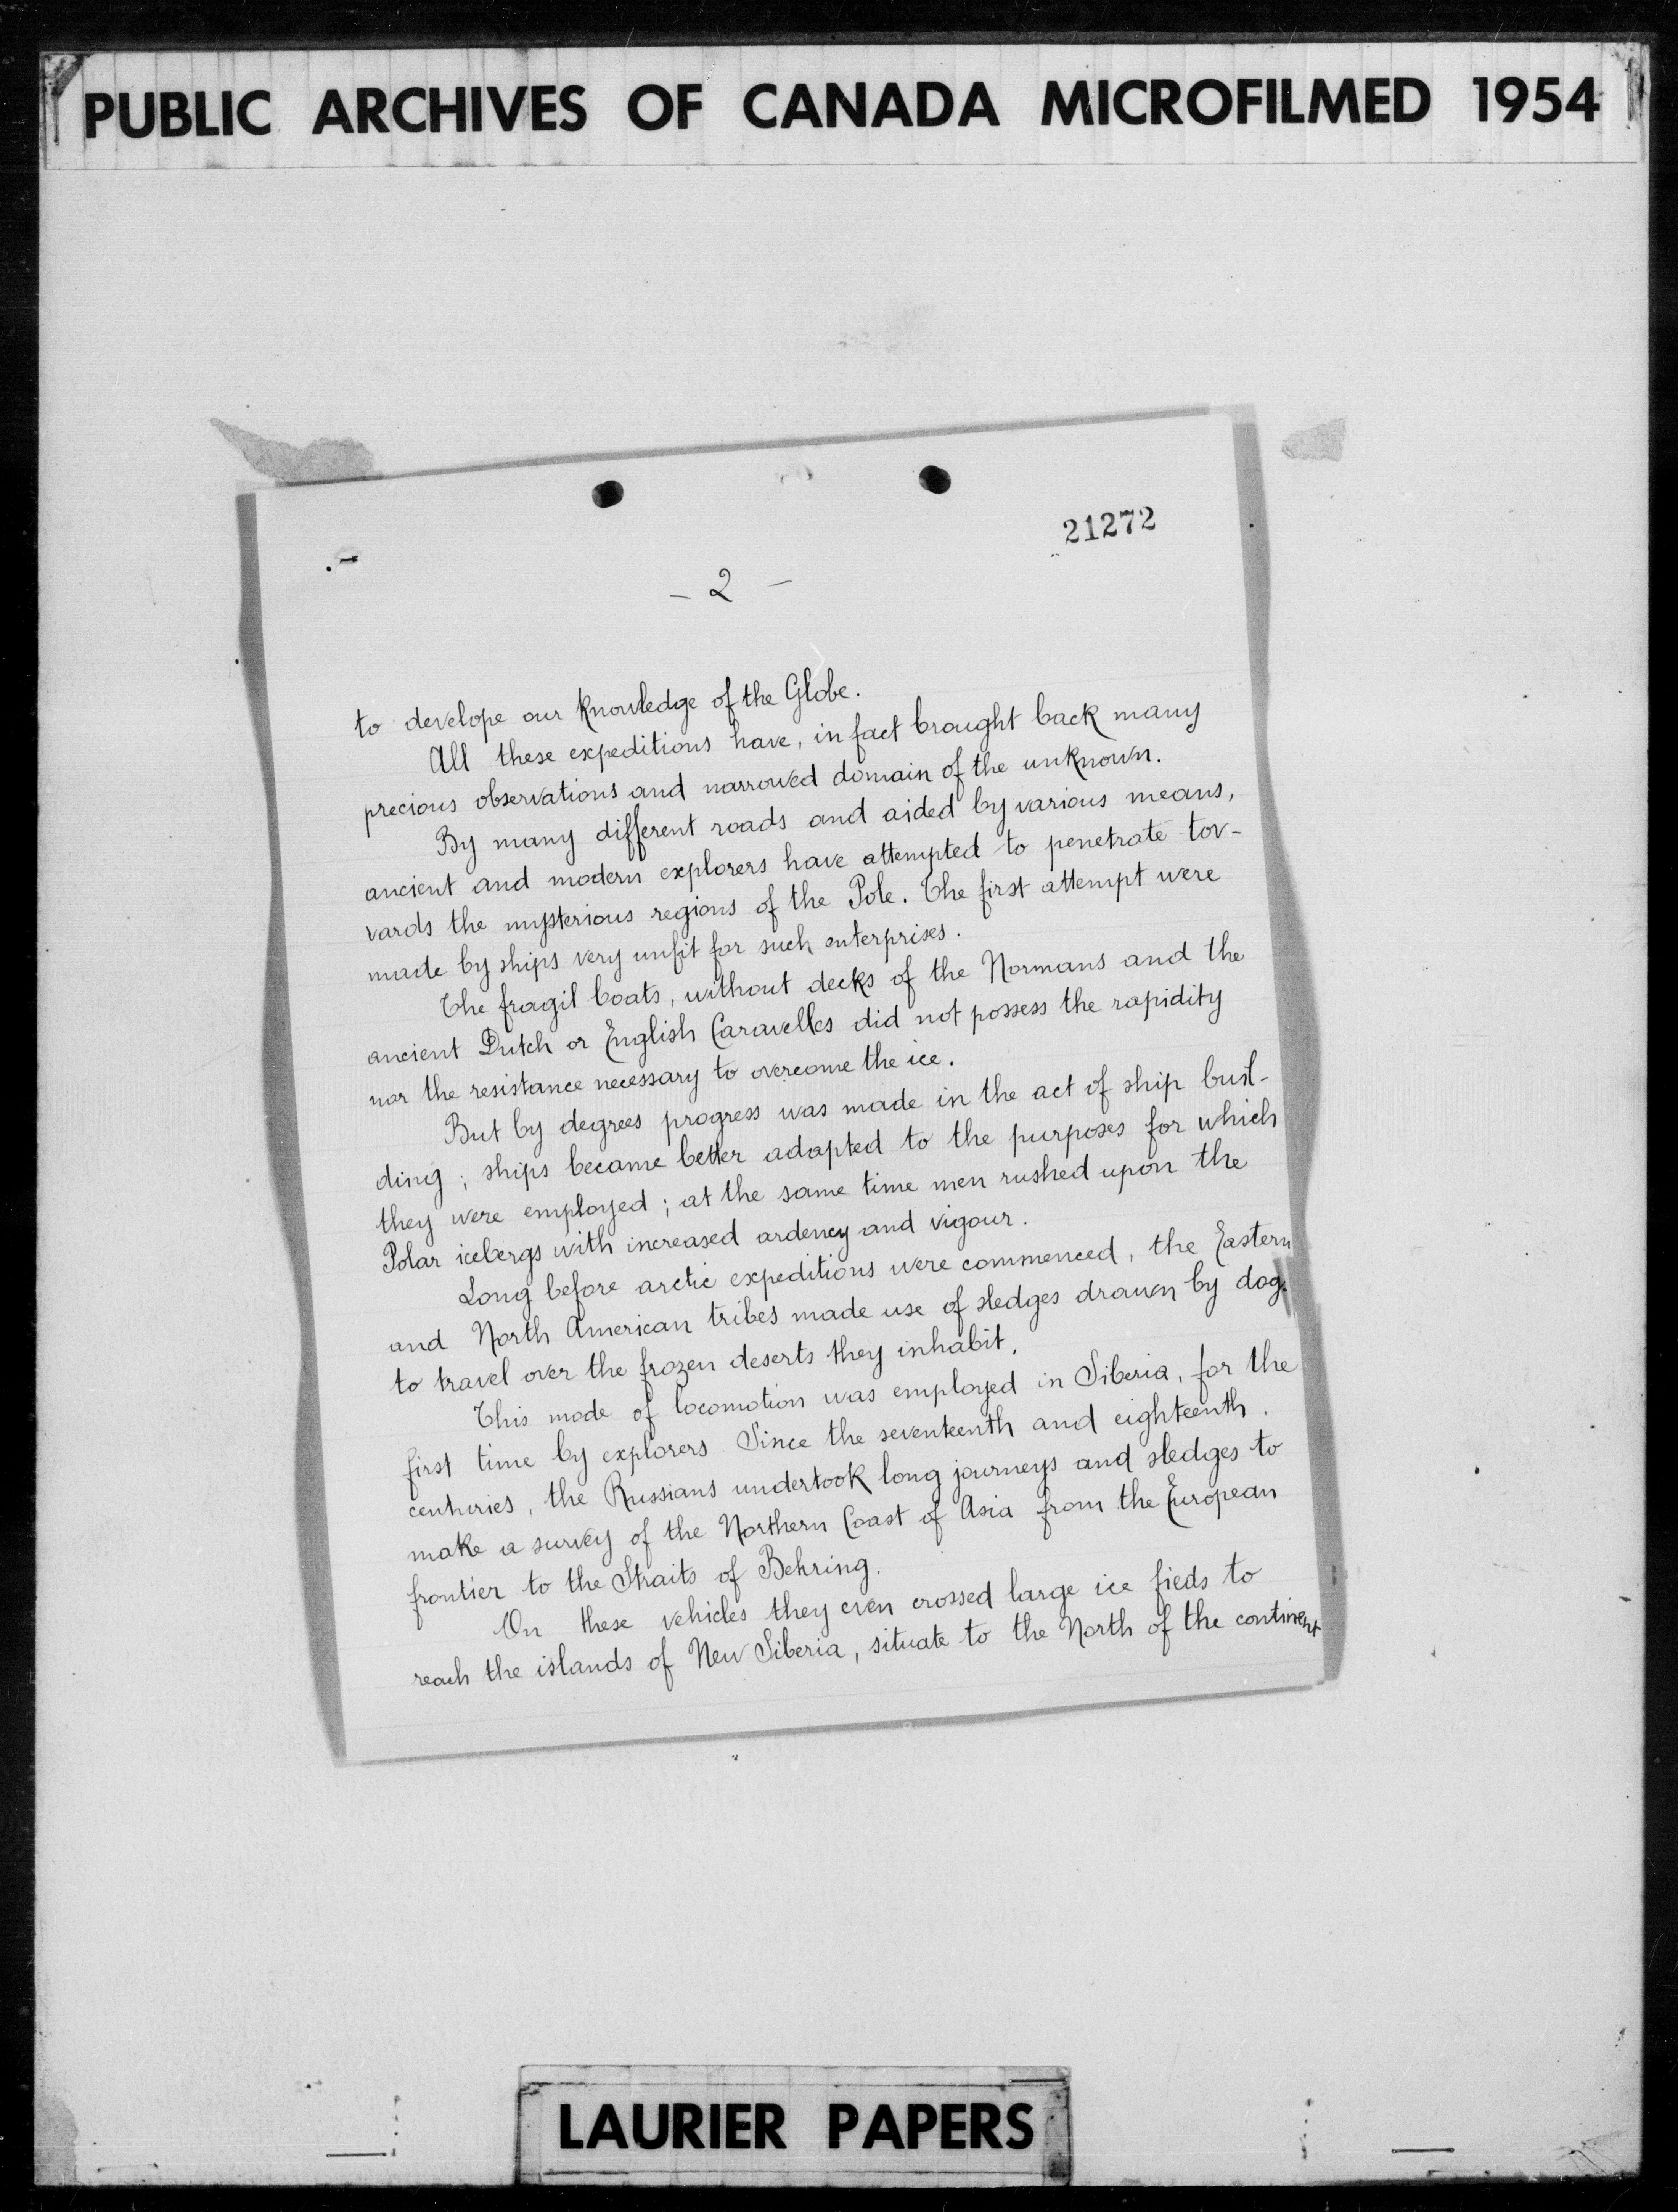 PUBLIC ARCHIVES OF CANADA MICROFILMED 1954
21272
- 2 -
to develope our knowledge of the Globe.
All these expeditions have, in fact brought back many
precious observations and narrowed domain of the unknown.
By many different roads and aided by various means,
ancient and modern explorers have attempted to penetrate tov-
vards the mysterious regions of the Pole. The first attempt were
made by ships very unfit for such enterprises.
The fragil boats, without decks of the Normans and the
ancient Dutch or English Caravelles did not possess the rapidity
nor the resistance necessary to overcome the ice.
But by degrees progress was made in the act of ship buil-
ding; ships became better adapted to the purposes for which
they were employed; at the same time men rushed upon the
Polar icebergs with increased ardency and vigour.
Long before arctic expeditions were commenced, the Eastern
and North American tribes made use of sledges drawn by dogs
to travel over the frozen deserts they inhabit.
This mode of locomotion was employed in Siberia, for the
first time by explorers. Since the seventeenth and eighteenth
centuries, the Russians undertook long journeys and sledges to
make a survey of the Northern Coast of Asia from the European
frontier to the Straits of Behring.
On these vehicles they even crossed large ice fieds to
reach the islands of New Siberia, situate to the North of the continent
LAURIER PAPERS